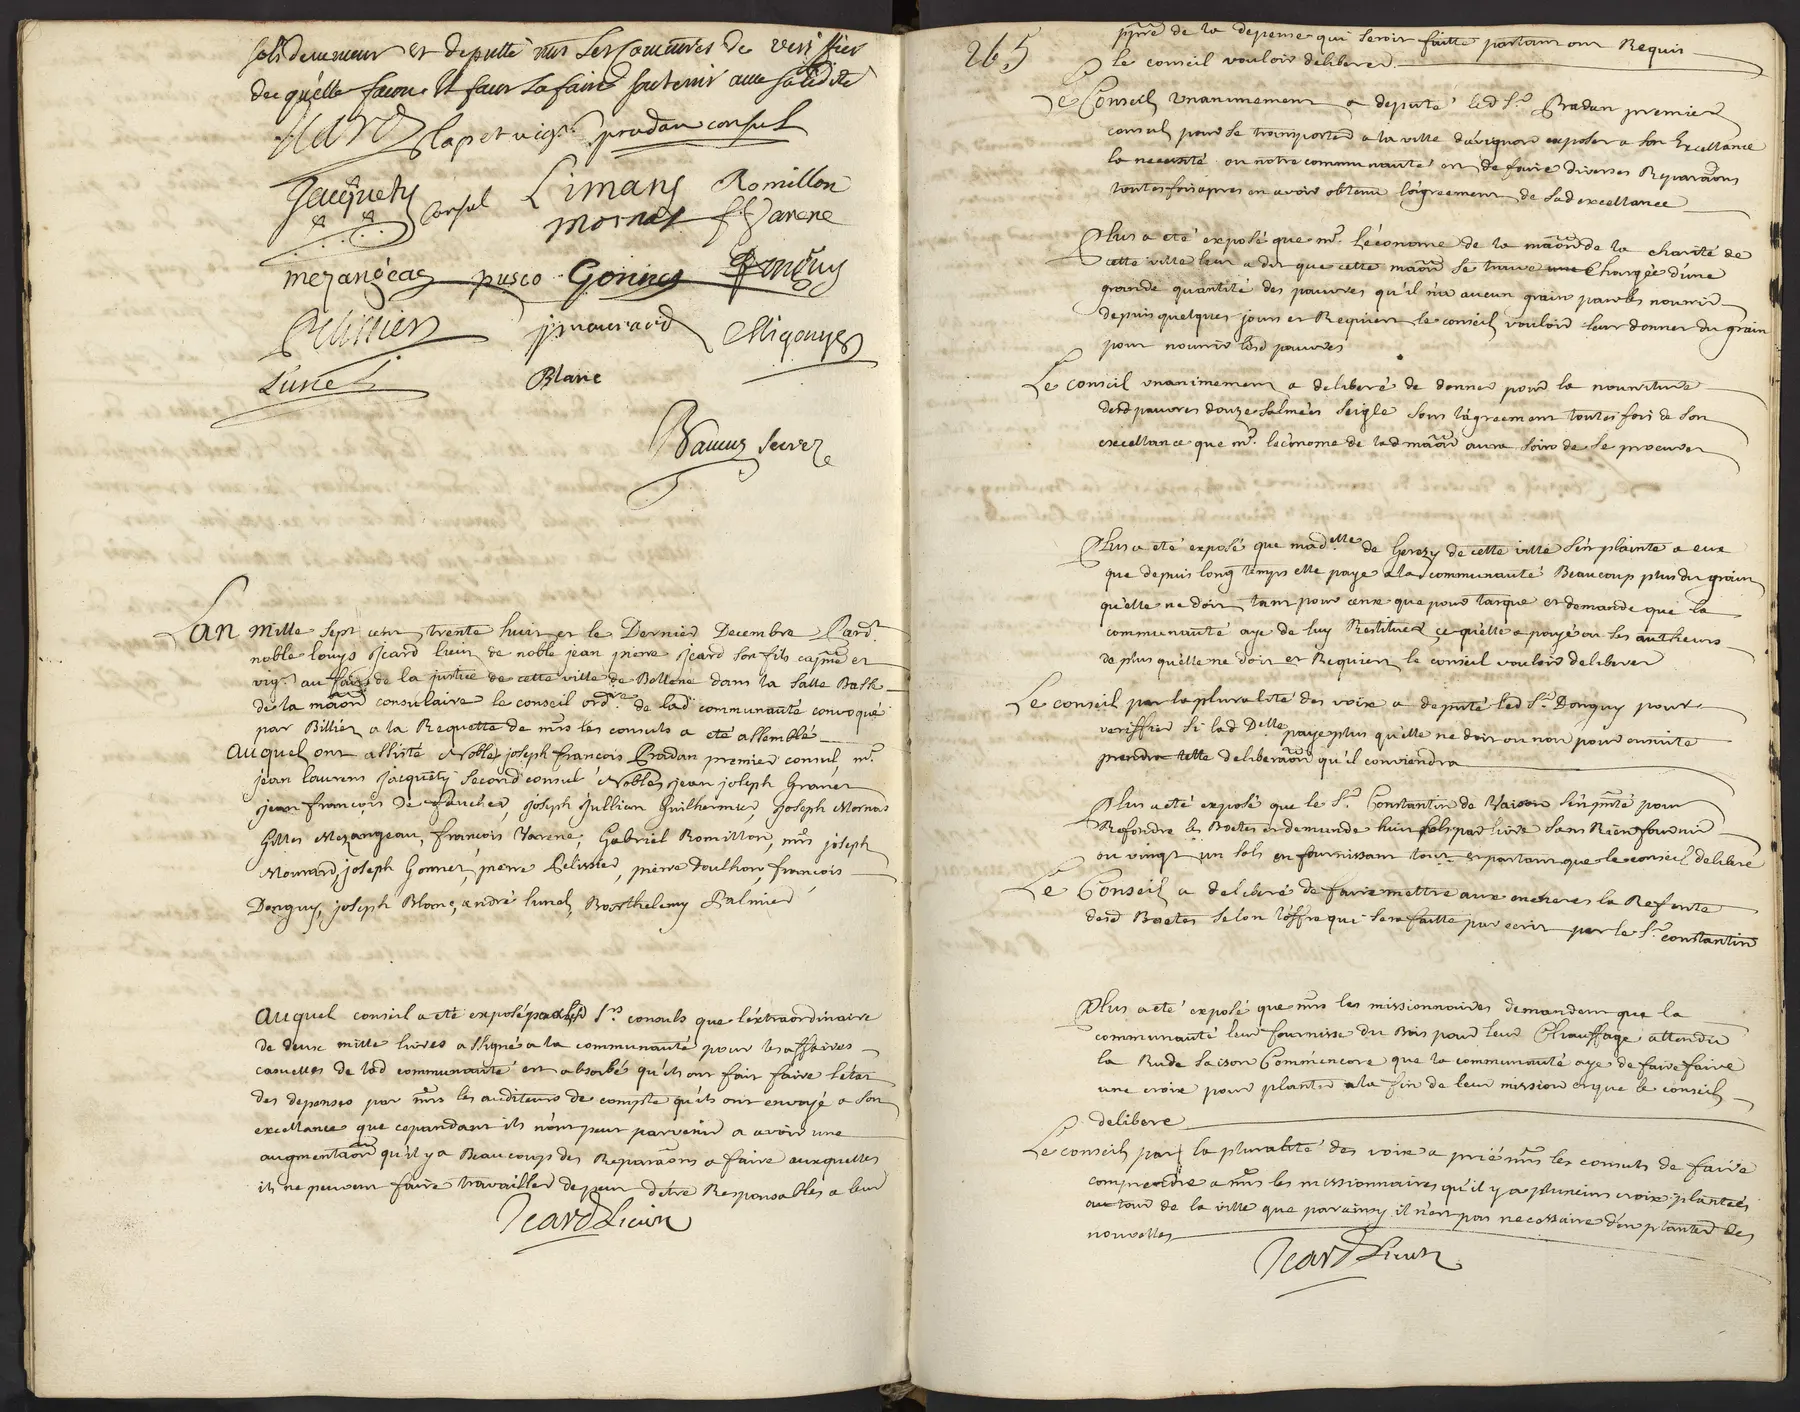 solidemement et deputté mrs Les Commres de veriffier
de quelle facon Il faut La faire soutenir avec solidité
Icard Clapet vigr. pradan consul
Jacquety Consul Limans Romillon
Mornas f. Varene
mezangeau pusco Gonnet Donguy
Pelissier jpmourard Migouyer
Lunel Blanc
Ramus Secrer.
Lan mille Sept cent trente huit et le Dernier Decembre Pardt.
noble Louys Icard Lieut. de noble jean pierre Icard son fils capne et
vigr. au fait de la justice de cette ville de Bollene dans la Salle Basse
de la maōn consulaire le conseil ordre. de lad communauté convoqué
par Billier a la Requette de mrs les consuls a eté assemblé
Auquel ont assisté Nobles joseph francois Pradan premier consul mr.
jean laurens Jacquety second consul Nobles jean joseph Granet
jean françois De faucher, joseph jullien Guilhermier, joseph Mornas
Gilles Mezangeau, françois Varene, Gabriel Romillon, mrs joseph
Mourard, joseph Gonnet, pierre Pelissier, pierre doulhon, francois
Donguy, joseph Blanc, andré Lunel, Barthelemy Palmier
Auquel conseil a eté exposé par lesd Srs consuls que l'extraordinaire
de deux mille livres assigné a la communauté pour les affaires
casuelles de lad communauté est absorbé qu'ils ont fait faire l'etat
des depenses par mrs les auditeurs de compte qu'ils ont envoyé a son
excellance que cepandant ils n'ont peut parvenir a avoir une
augmentaōn qu'il y a Beaucoup des Reparaōns a faire auxquelles
ils ne peuvent faire travailler de peur d'etre Responsables a leur
Icard Lieut
265
ppre de la depense qui seroit faitte partant ont Requis
le conseil vouloir deliberer
Le Conseil unanimement a deputé led Sr. Pradan premier
consul pour se transporter a la ville d'avignon exposer a son Excellance
la necessité ou notre communauté est de faire diverses Reparaōns
toutesfois apres en avoir obtenu l'agreement de Sad excellance
Plus a eté exposé que mr. l'econome de la maōn de la charité de
cette ville leur a dit que cette maōn se trouve chargée d'une
grande quantité des pauvres qu'il n'a aucun grain pour les nourrir
depuis quelques jours et Requiert le conseil vouloir leur donner du grain
pour nourrir lesd pauvres
Le conseil unanimement a deliberé de donner pour la nourriture
desd pauvres douze salmées seigle sous l'agreement toutes fois de son
excellance que mr. l'econome de lad maōn aura soin de se procurer
Plus a eté exposé que madelle de Gerezy de cette ville s'ert plainte a eux
que depuis long temps elle paye a la communauté Beaucoup plus du grain
qu'elle ne doit tant pour cense que pour tasque et demande que la
communauté aye de luy Restituer ce qu'elle a payé ou ses autheurs
de plus qu'elle ne doit et Requiert le conseil vouloir deliberer
Le conseil par la pluralité des voix a deputé led Sr. Donguy pour
veriffier si lad Delle paye plus qu'elle ne doit ou non pour ensuite
prendre telle deliberaōn qu'il conviendra
Plus a eté exposé que le Sr. Constantin de Vaison s'ert pnté pour
Refondre les Boetes et demande huit sols par livre sans Rien fournir
ou vingt un sols en fournissant tout et partant que le conseil delibere
Le Conseil a deliberé de faire mettre aux encheres la Refonte
desd Boetes selon l'offre qui sera faitte par ecrit par le Sr. constantin
Plus a eté exposé que mrs les missionnaires demandent que la
communauté leur fournisse du Bois pour leur Chauffage attendu
la Rude saison Comm'encore que la communauté aye de faire faire
une croix pour planter a la fin de leur mission et que le conseil
delibere
Le conseil par la pluralité des voix a prié mrs les consuls de faire
comprendre a mrs les missionnaires qu'il y a plusieurs croix plantées
autour de la ville que parainsy il n'est pas necessaire d'en planter des
nouvelles
Icard Lieut